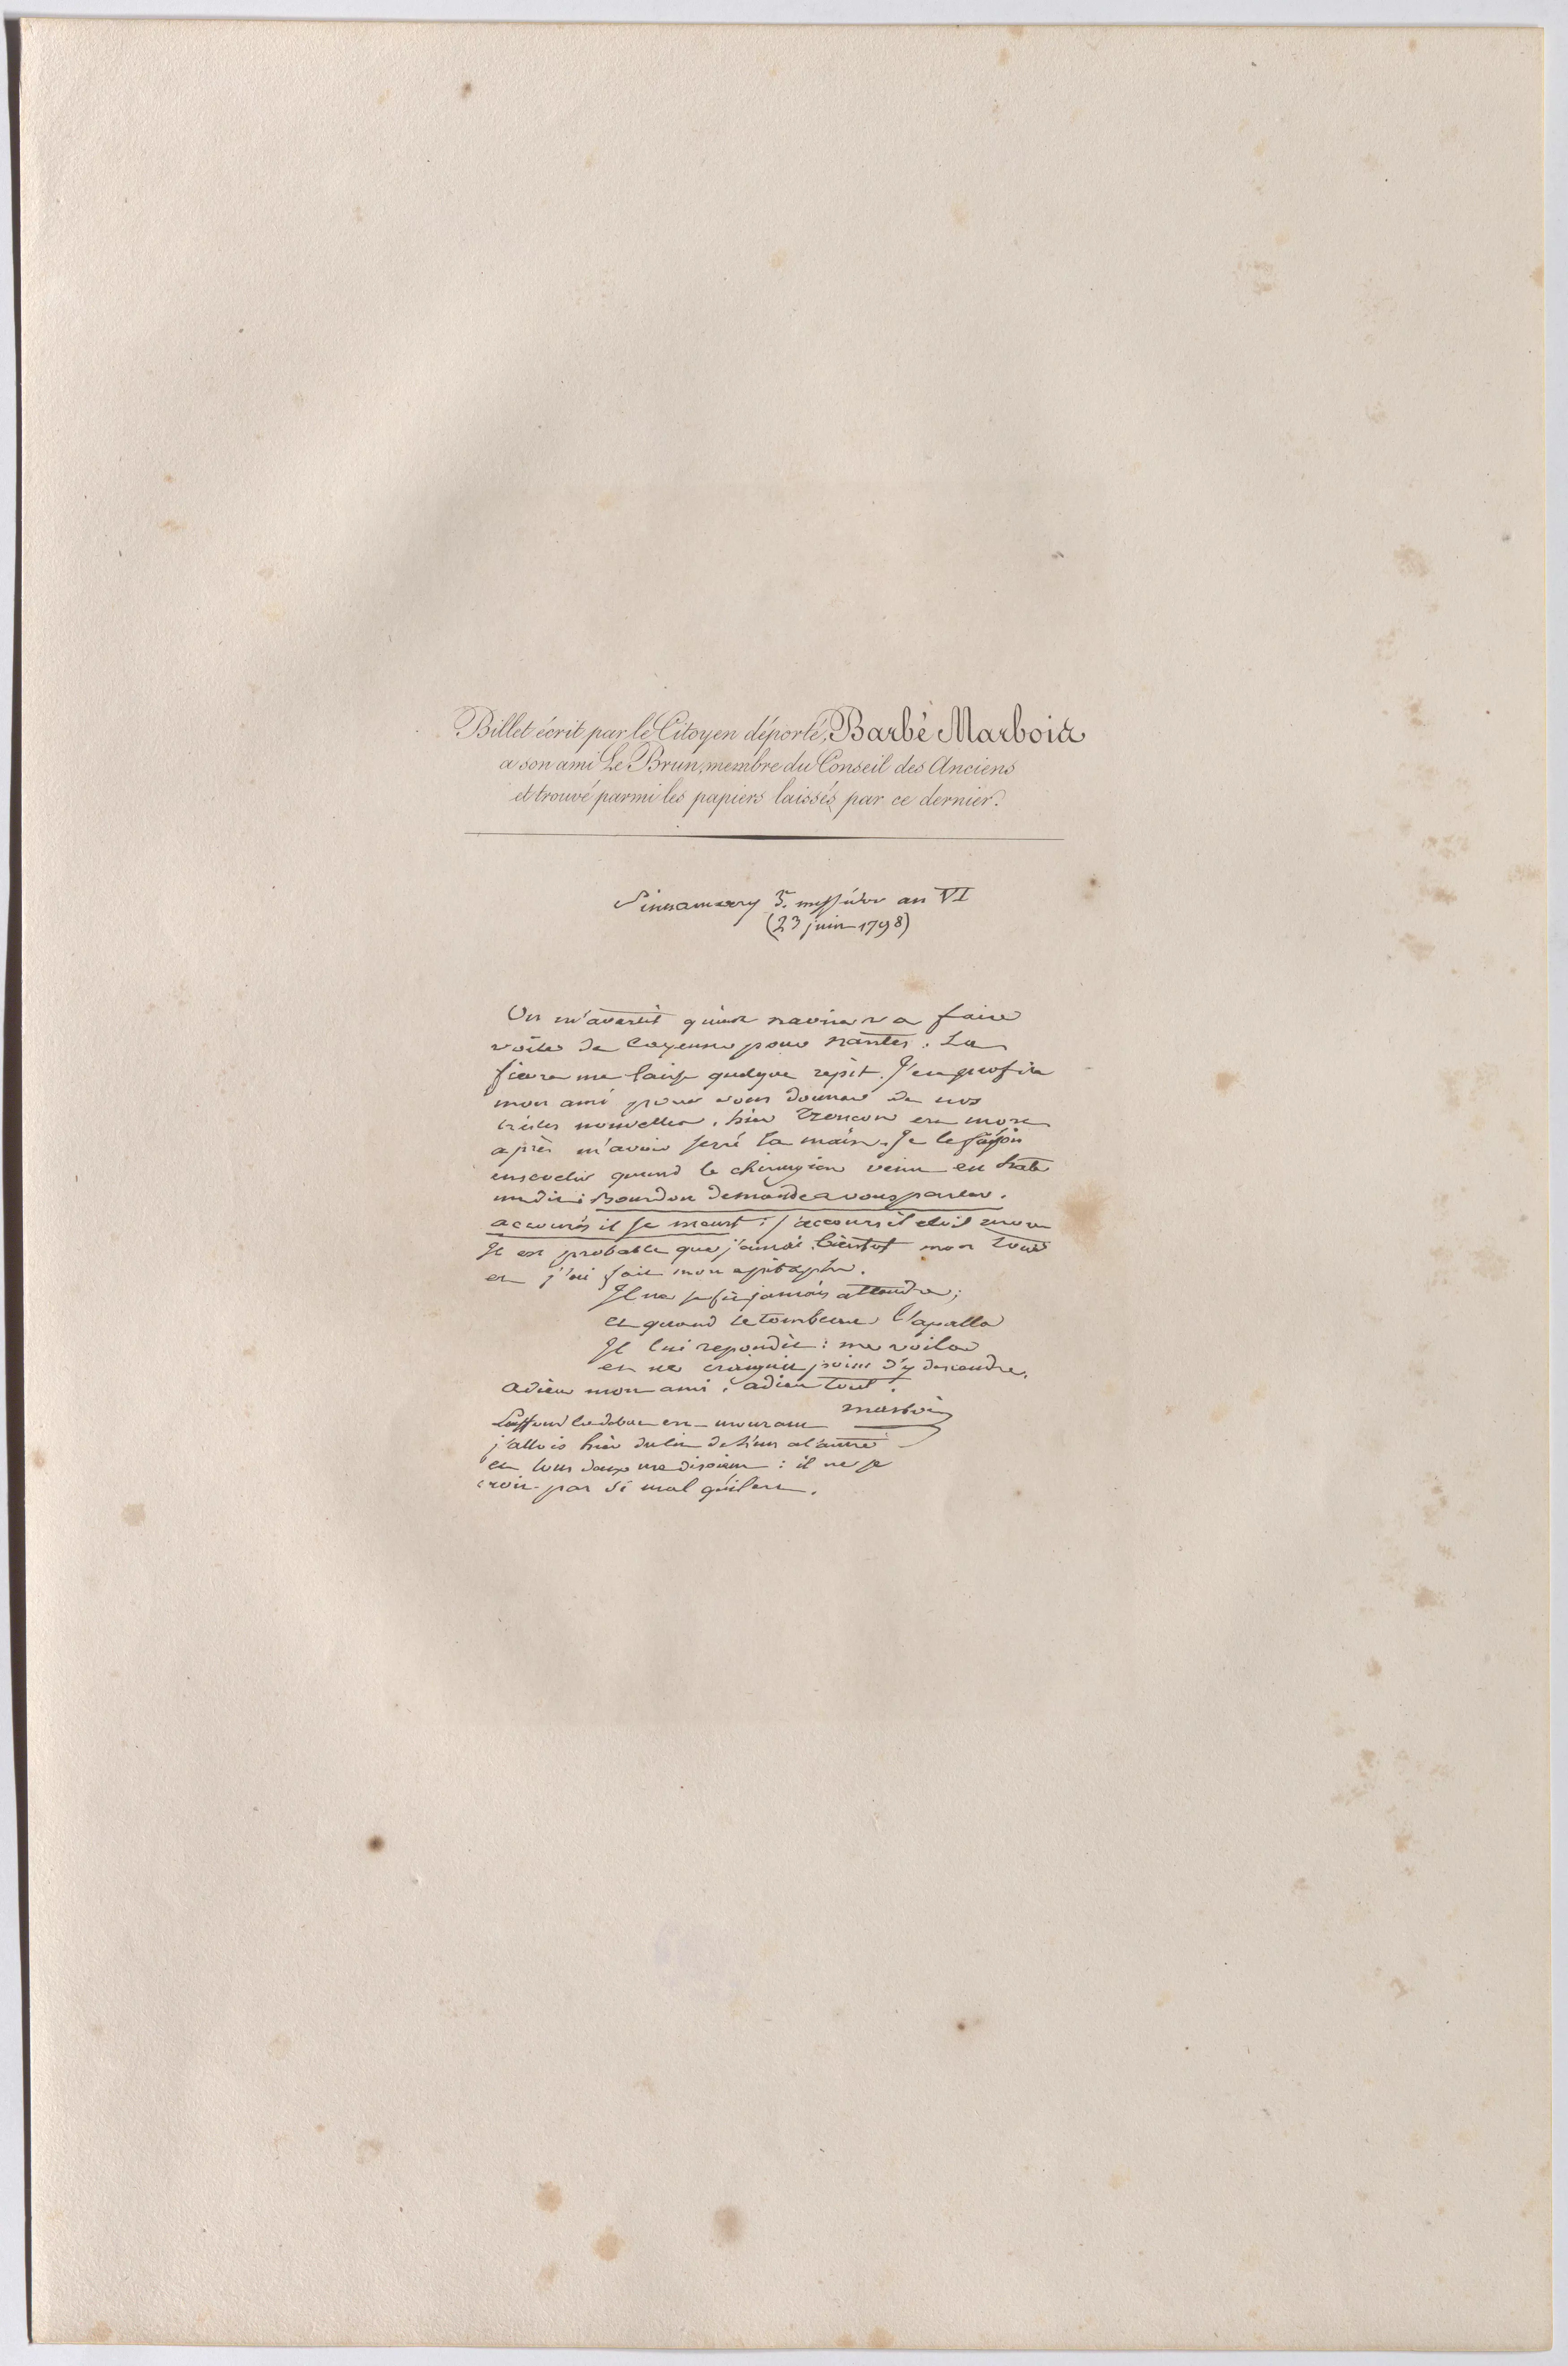 Billet écrit par le Citoyen déporté, Barbé Marbois
a son ami Le Brun, membre du Conseil des Anciens
et trouvé parmi les papiers laissés par ce dernier.
Sinnamary 5. messidor an VI
(23 juin 1798)
On m'avertit qu'un navire va faire
voile de Cayenne pour nantes. La
fievre me laisse quelque repit. J'en profite
mon ami pour vous donner de nos
tristes nouvelles. hier Tronçon est mort
après m'avoir serré la main. Je le faisois
ensevelir quand le chirurgien vient en hate
me dit: Bourdon demande a vous parler.
accourés il se meurt: j'accours il etoit mort
Il est probable que j'aurai bientot mon tour
et j'ai fait mon epitaphe.
Il ne se fit jamais attendre;
et quand le tombeau l'apella
Il lui repondit: me voila
et ne craignit point d'y descendre.
adieu mon ami, adieu tout.
marbois
Laffond ladebat est mourant
j'allois hier du lit de l'un a l'autre
et tous deux me disoient: il ne se
croit pas si mal qu'il est.